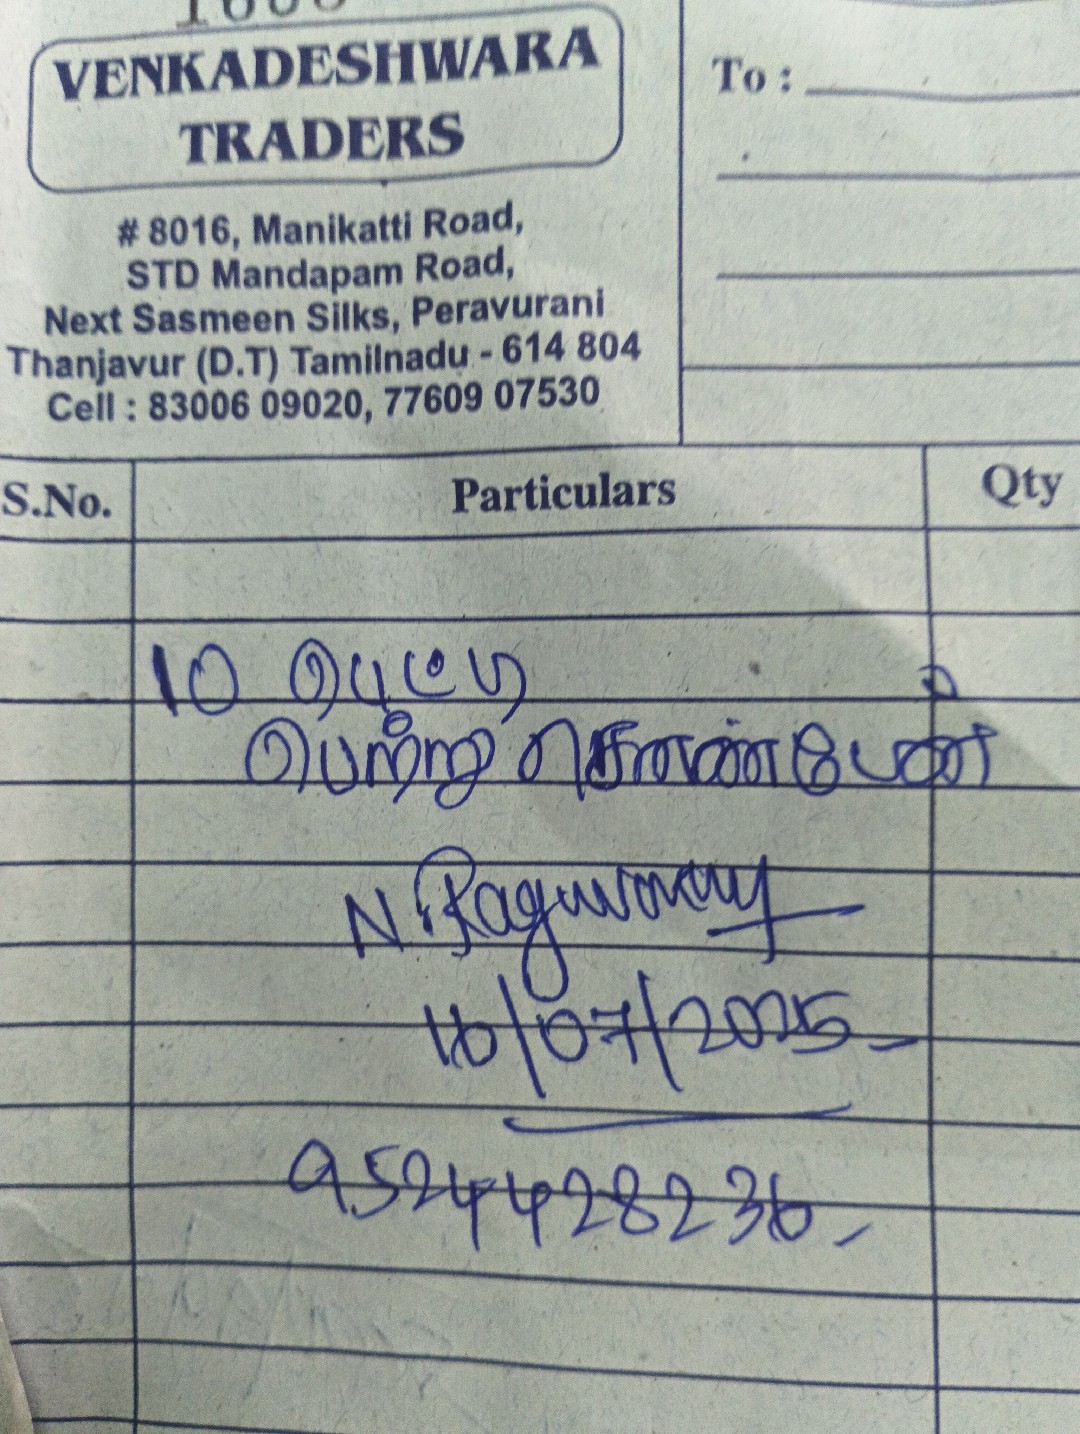 VENKADESHWARA
TRADERS
# 8016, Manikatti Road,
STD Mandapam Road,
Next Sasmeen Silks, Peravurani
Thanjavur (D.T) Tamilnadu - 614 804
Cell : 83006 09020, 77609 07530
To :
S.No. Particulars Qty
10 பெட்டி
பெற்று கொண்டேன்
N. Raguvaran
16/07/2025
9524428236